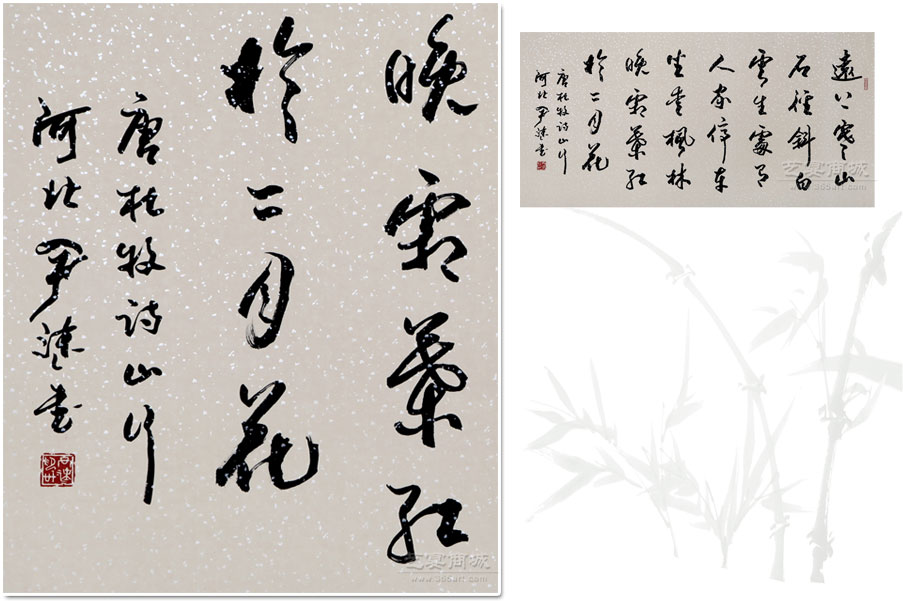 晚霜葉紅
於二月花
唐杜牧詩山行
河北尹书
商城
www.365art.com
遠上寒山
石徑斜白
雲生處有
人家停車
坐愛楓林
晚霜葉紅
於二月花
唐杜牧詩山行
河北尹书
商城
www.365art.com